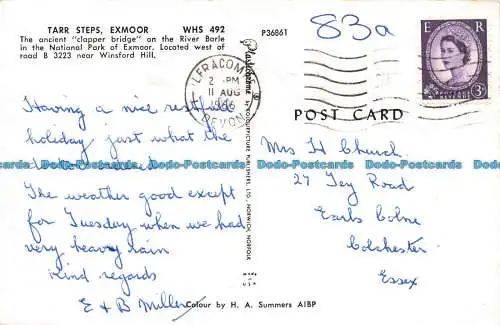 TARR STEPS, EXMOOR WHS 492
The ancient "clapper bridge" on the River Barle
in the National Park of Exmoor. Located west of
road B 3223 near Winsford Hill.
Having a nice restful
holiday just what the
The weather good except
for Tuesday when we had
very heavy rain
Kind regards
E & B Miller
Colour by H. A. Summers AIBP
P36861
Plastichrome ®
ILFRACOMBE
2 - PM
11 AUG
1966
DEVON
83a
E R
3D
POST CARD
Mrs H Church
27 Tey Road
Earls Colne
Colchester
Essex
Dodo-Postcards Dodo-Postcards Dodo-Postcards Dodo-Postcards